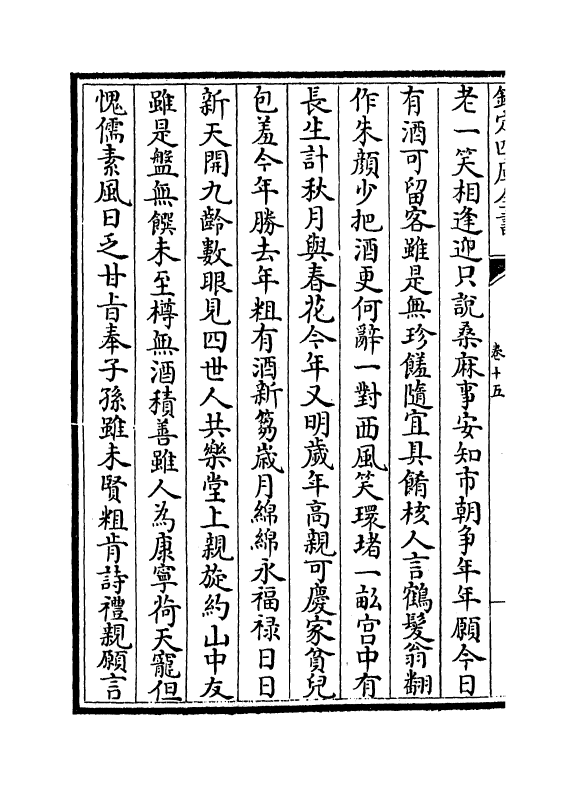 欽定四庫全書
卷十五
老一笑相逢迎只說桑麻事安知市朝爭年年願今日
有酒可留客雖是無珍饈隨宜具餚核人言鶴髮翁翻
作朱顔少把酒更何辭一對西風笑環堵一畝宫中有
長生計秋月與春花今年又明歲年高親可慶家貧兒
包羞今年勝去年粗有酒新篘歲月綿綿永福禄日日
新天開九齡數眼見四世人共樂堂上親旋約山中友
雖是盤無饌未至樽無酒積善雖人為康寧荷天寵但
愧儒素風日乏甘㫖奉子孫雖未賢粗肯詩禮親願言